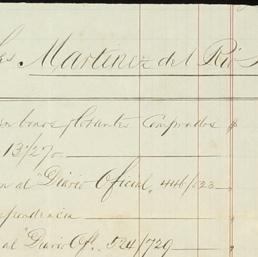 Martinez del Rio
en bonos flotantes Comprados $
13/27o
n al "Diario Oficial, 446/523
ependencia
al "Diario Of. 524/729